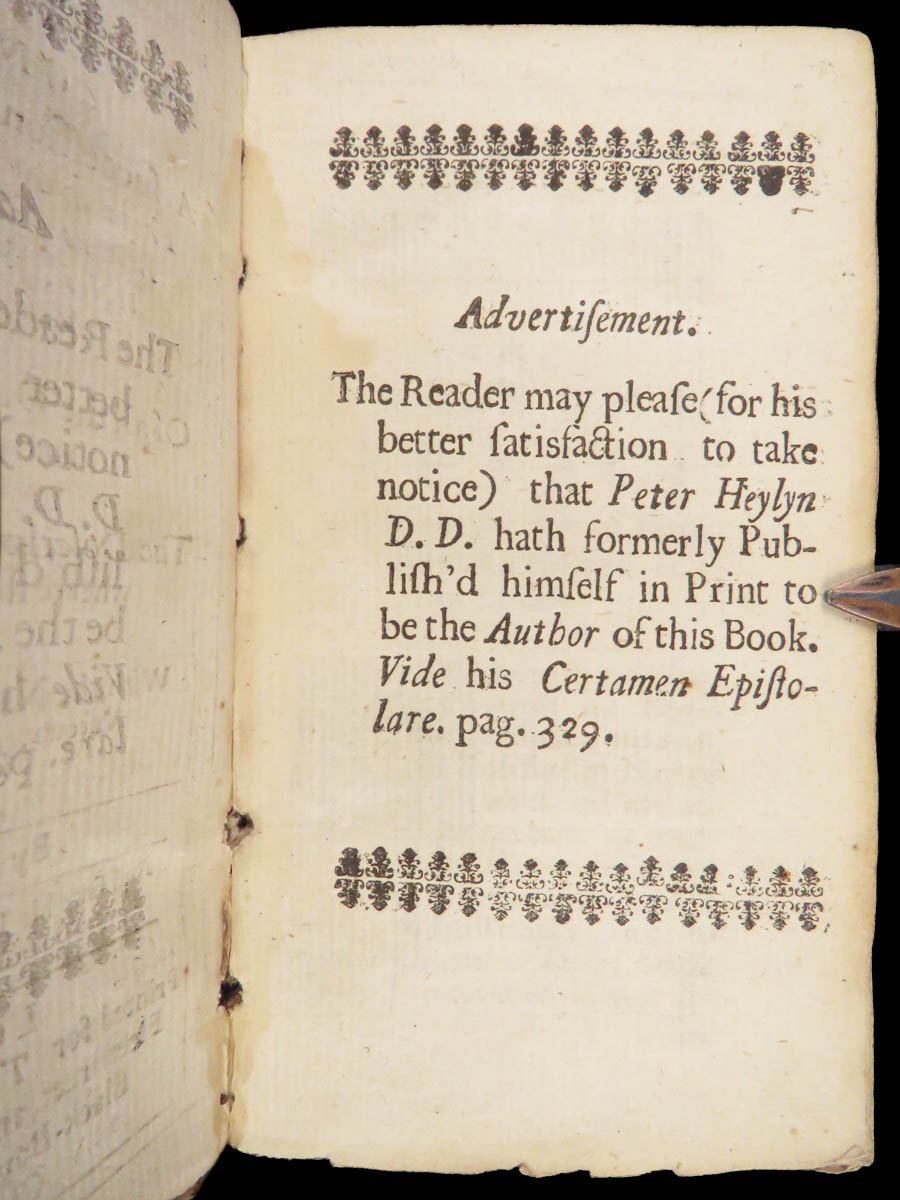 Advertiſement.
The Reader may pleaſe (for his
better ſatisfaction to take
notice) that Peter Heylyn
D. D. hath formerly Pub-
liſh'd himſelf in Print to
be the Author of this Book.
Vide his Certamen Epiſto-
lare. pag. 329.